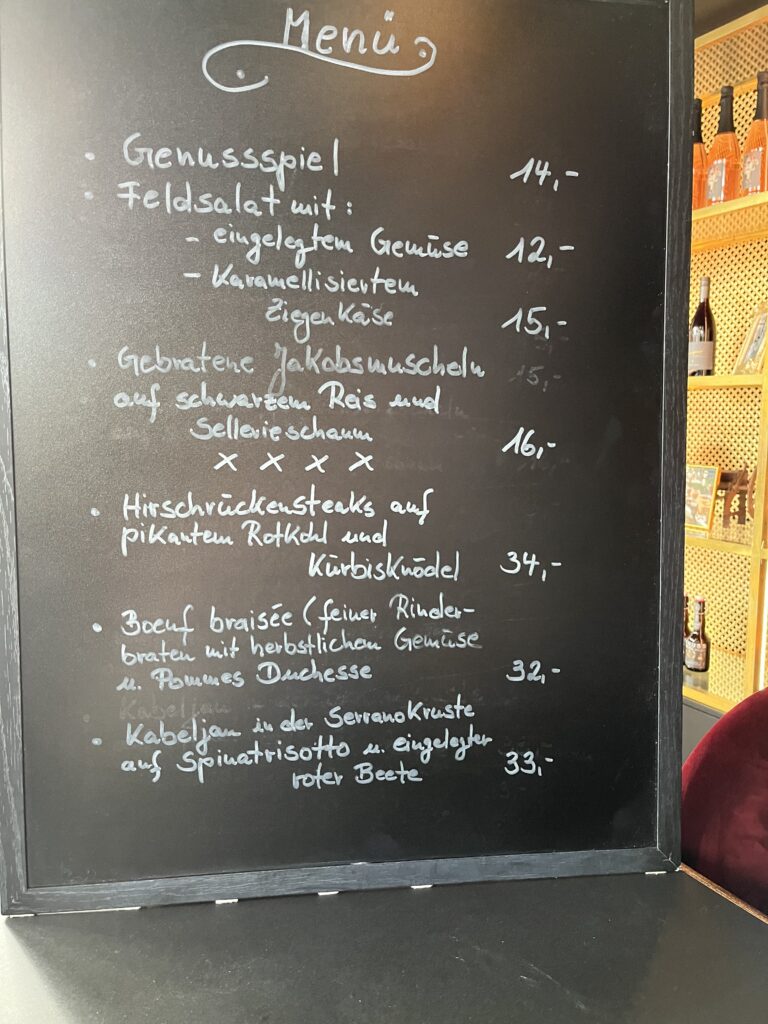 Menü
• Genussspiel 14,-
• Feldsalat mit:
- eingelegtem Gemüse 12,-
- Karamellisiertem
Ziegenkäse 15,-
• Gebratene Jakobsmuscheln 15,-
auf schwarzem Reis und
Sellerieschaum 16,-
x x x x
• Hirschrückensteaks auf
pikantem Rotkohl und
Kürbisknödel 34,-
• Boeuf braisée (feiner Rinder-
braten mit herbstlichen Gemüse
u. Pommes Duchesse 32,-
Kabeljau
• Kabeljau in der Serranokruste
auf Spinatrisotto u. eingelegter
roter Beete 33,-